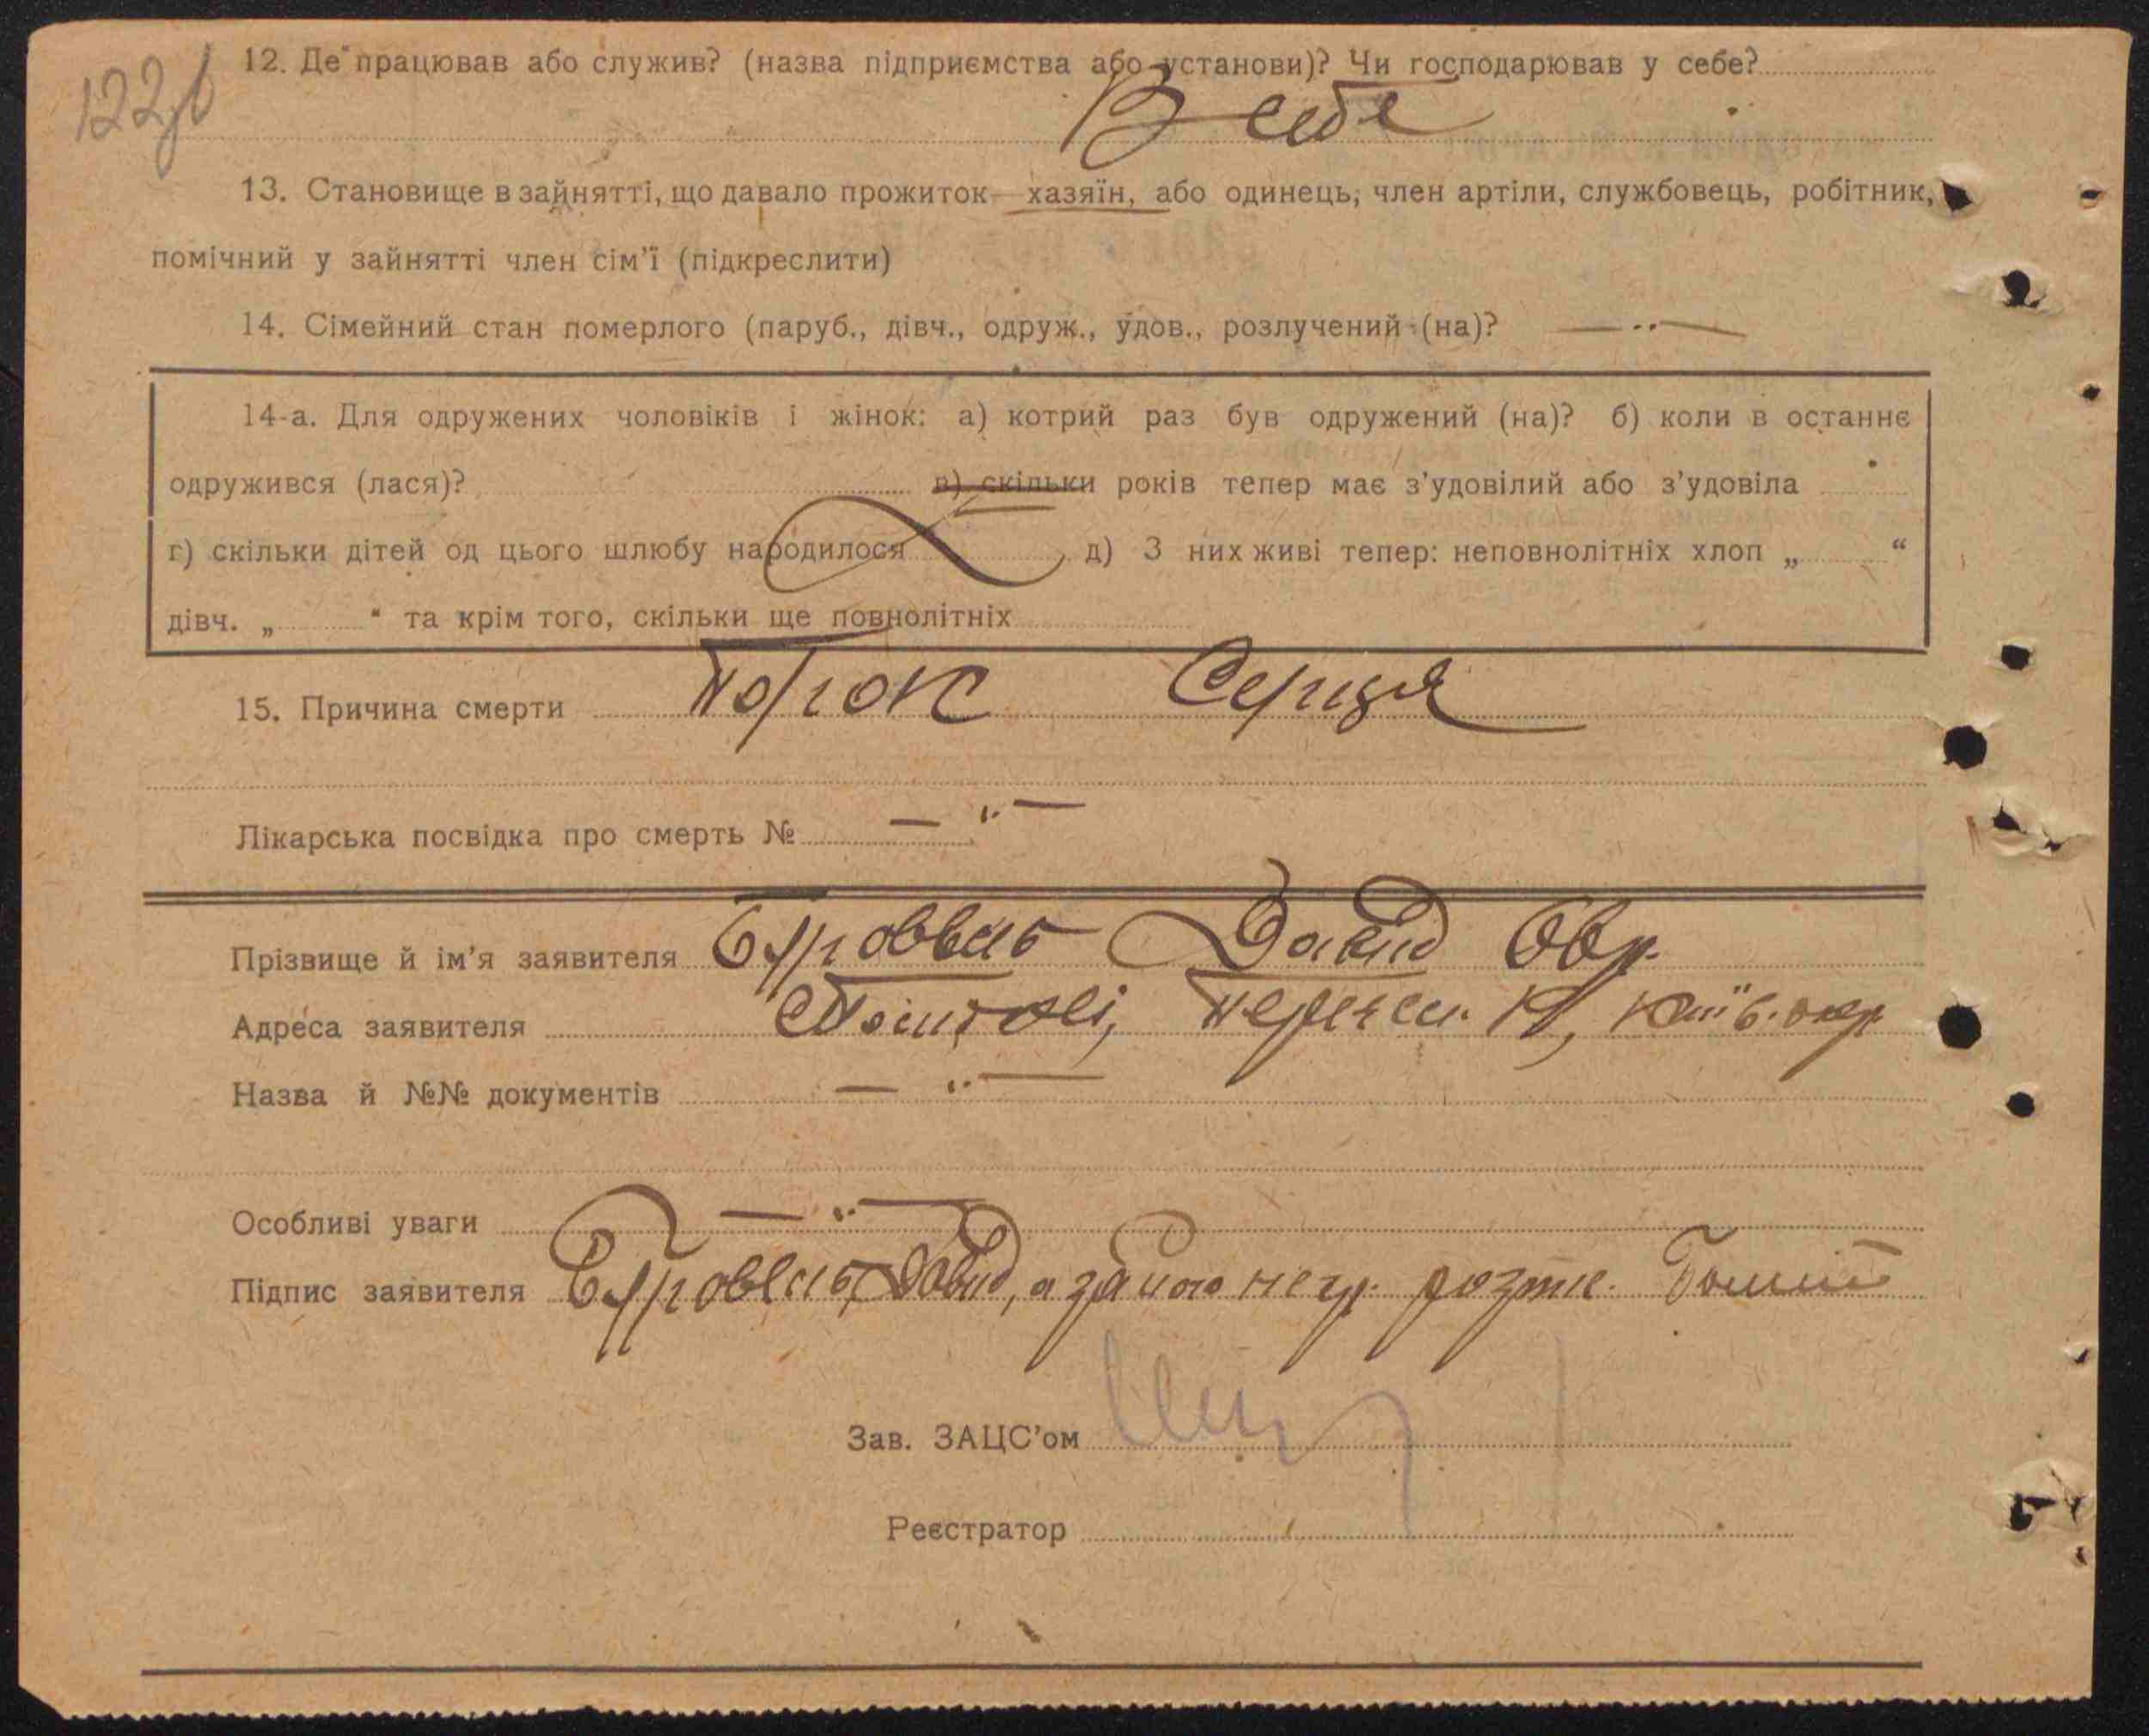 12. Де працював або служив? (назва підприємства або установи)? Чи господарював у себе?
В себе
13. Становище в зайнятті, що давало прожиток — хазяїн, або одинець, член артіли, службовець, робітник,
помічний у зайнятті член сім’ї (підкреслити)
14. Сімейний стан померлого (паруб., дівч., одруж., удов., розлучений (на)? — ·· —
14-а. Для одружених чоловіків і жінок: а) котрий раз був одружений (на)? б) коли в останнє
одружився (лася)? в) скільки років тепер має з’удовілий або з’удовіла
г) скільки дітей од цього шлюбу народилося д) З них живі тепер: неповнолітніх хлоп „ “
дівч. „ “ та крім того, скільки ще повнолітніх
15. Причина смерти Порок Серця
Лікарська посвідка про смерть № — ·· —
Прізвище й ім’я заявителя Давид
Адреса заявителя Київ. окр
Назва й №№ документів — ·· —
Особливі уваги — ·· —
Підпис заявителя а за його негр. розпис.
Зав. ЗАЦС’ом
Реєстратор